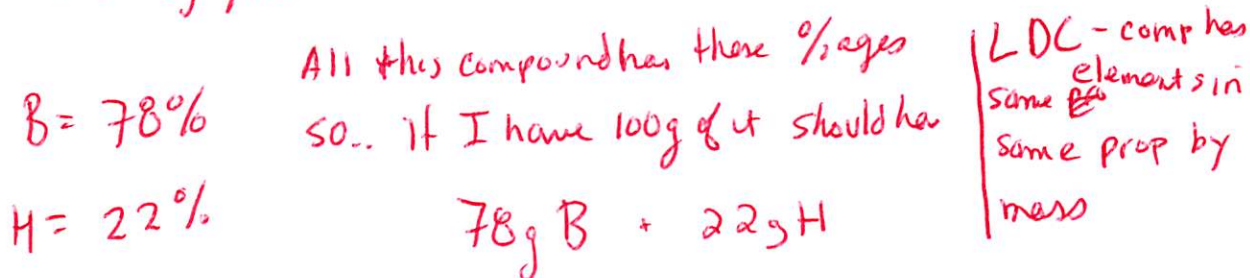 All this compound has these %ages
B = 78%
so.. if I have 100g of it should ha
H = 22%
78g B + 22g H
LDC - comp has
same elements in
same prop by
mass